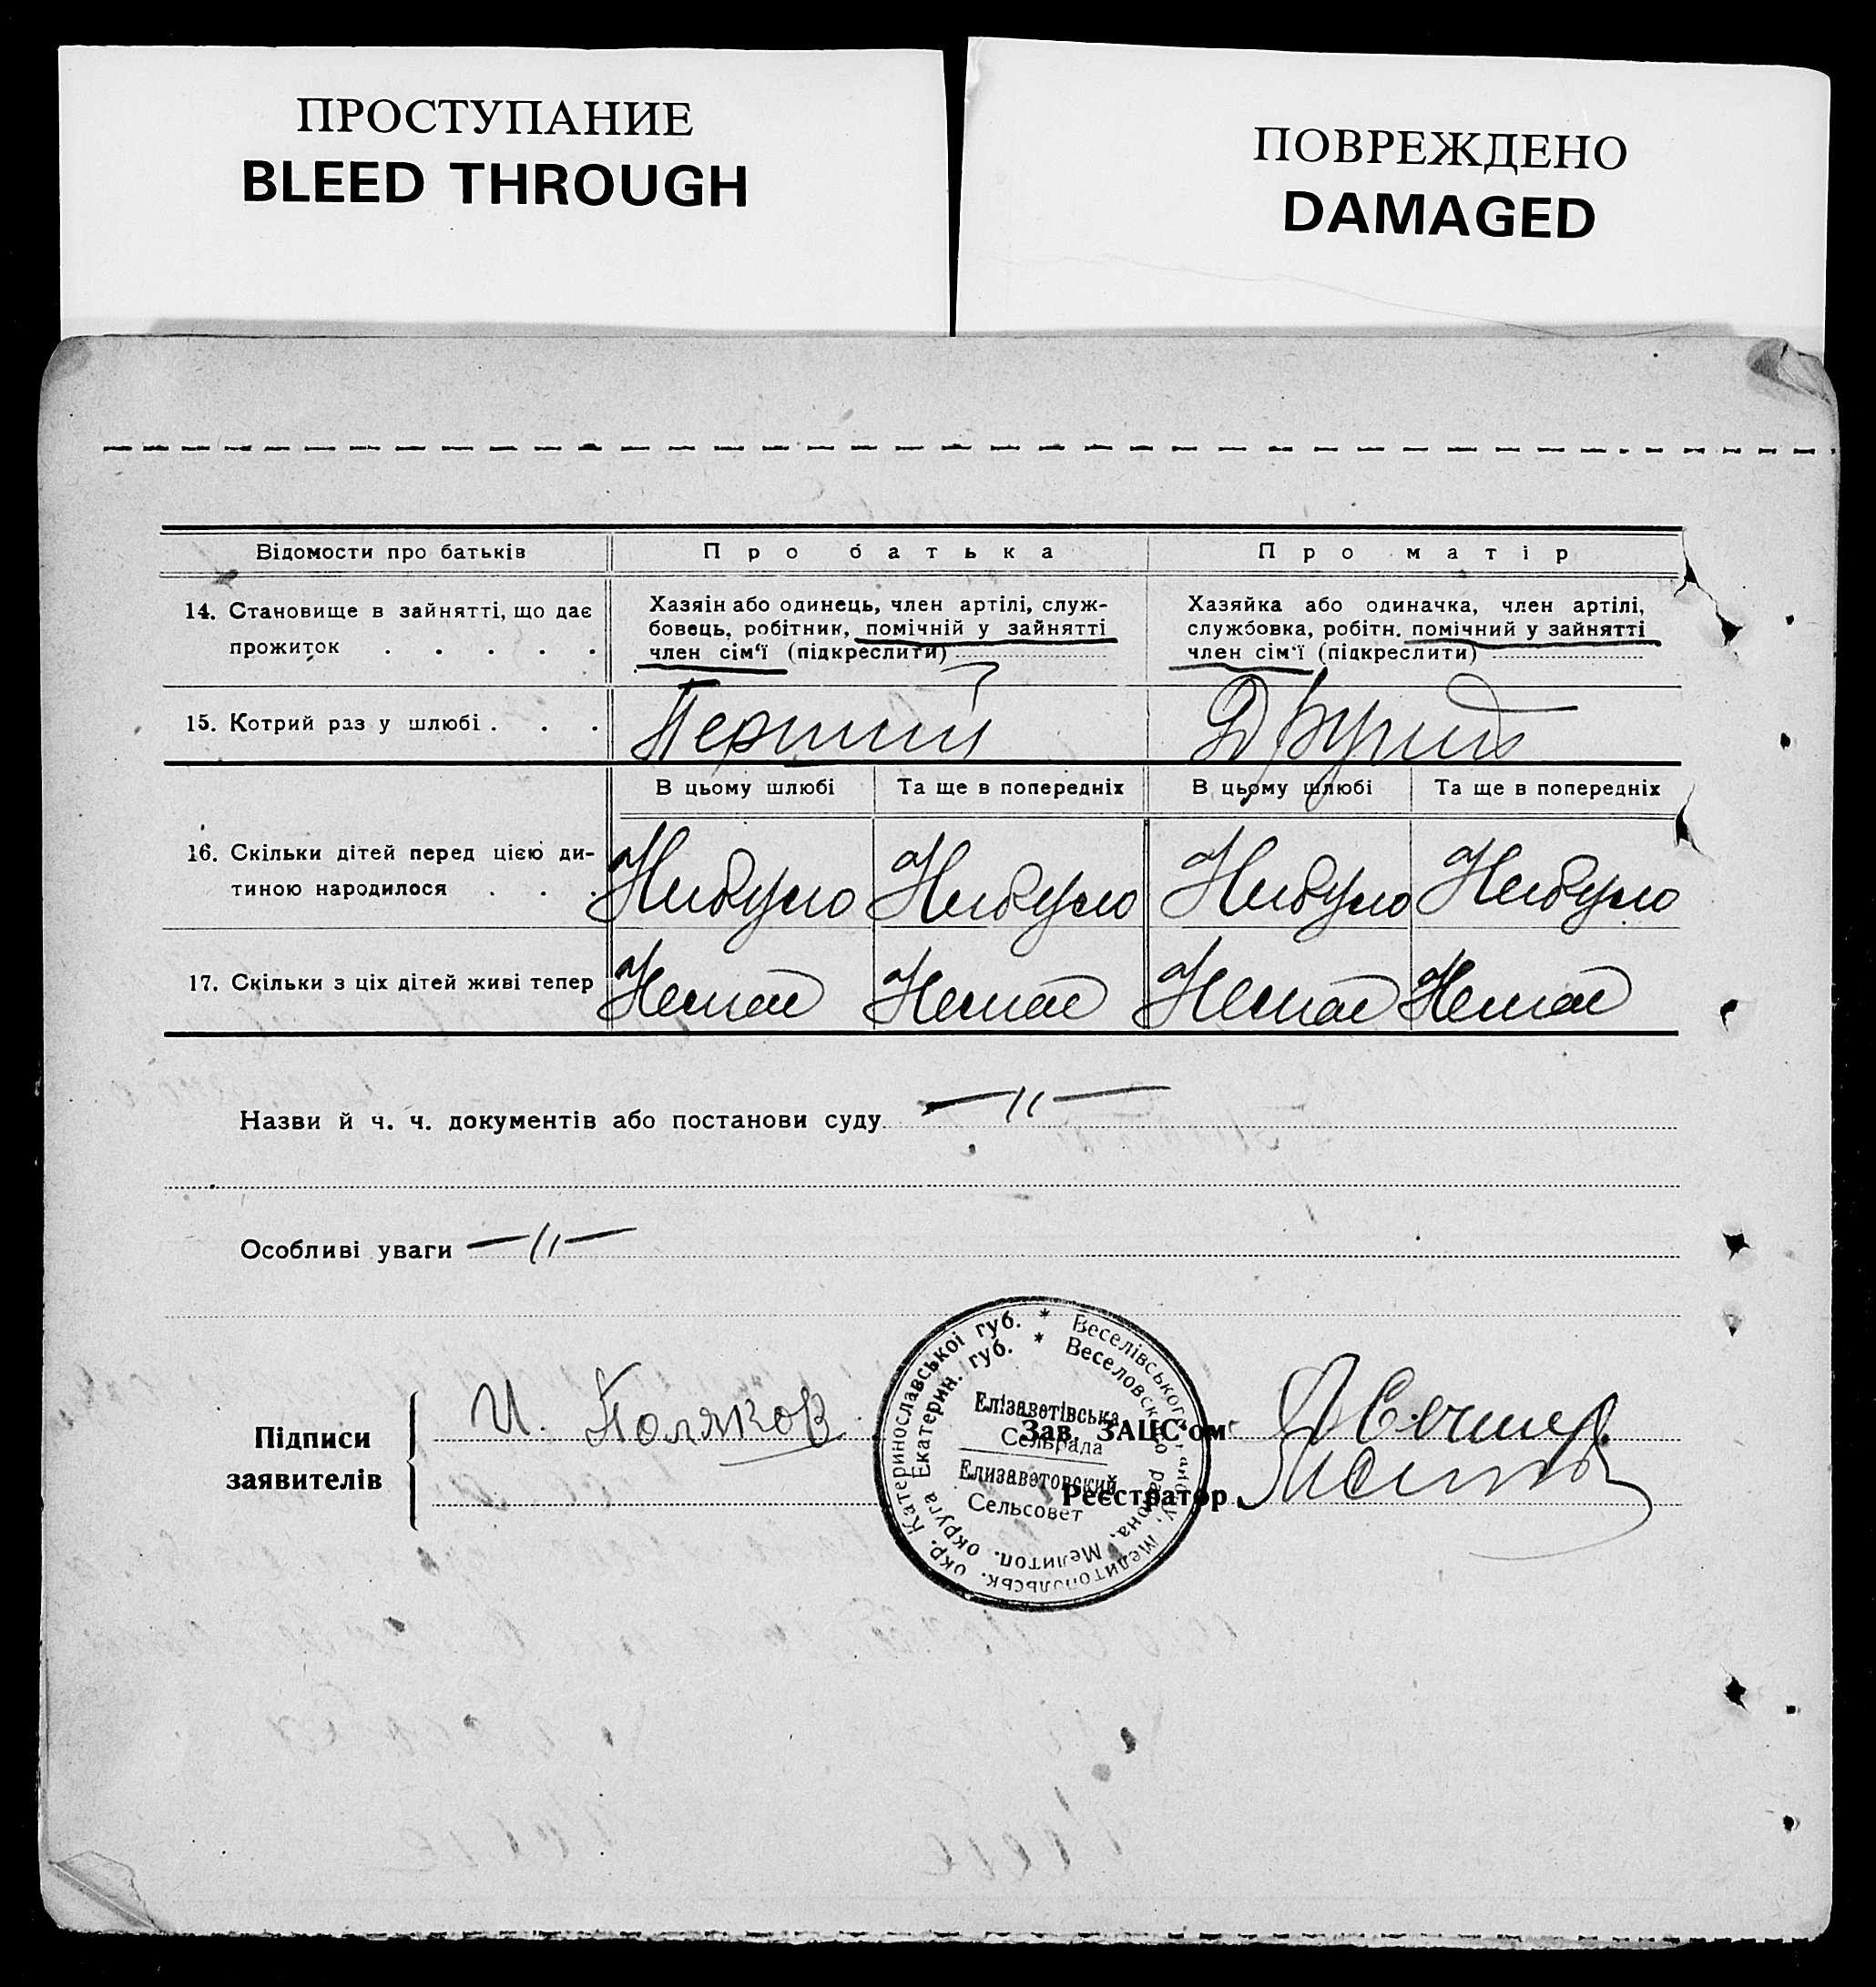 ПРОСТУПАНИЕ
BLEED THROUGH
ПОВРЕЖДЕНО
DAMAGED
Відомости про батьків
Про батька
Про матір
14. Становище в зайнятті, що дає
прожиток . . . . .
Хазяін або одинець, член артілі, служ-
бовець, робітник, помічній у зайнятті
член сім‘ї (підкреслити)
Хазяйка або одиначка, член артілі,
службовка, робітн. помічний у зайнятті
член сім‘ї (підкреслити)
15. Котрий раз у шлюбі . . .
Перший
Другий
В цьому шлюбі
Та ще в попередніх
В цьому шлюбі
Та ще в попередніх
16. Скільки дітей перед цією ди-
тиною народилося . . .
Небуло
Небуло
Небуло
Небуло
17. Скільки з ціх дітей живі тепер
Немає
Немає
Немає
Немає
Назви й ч. ч. документів або постанови суду —//—
Особливі уваги —//—
Підписи
заявителів
И. Поляков
Катеринославської губ. * Веселівського району, Мелитопольськ. окр.
Екатерин. губ. * Веселовского района, Мелитоп. округа
Елізаветівська
Сельрада
Елизаветовский
Сельсовет
Зав. ЗАЦС‘ом
Реєстратор